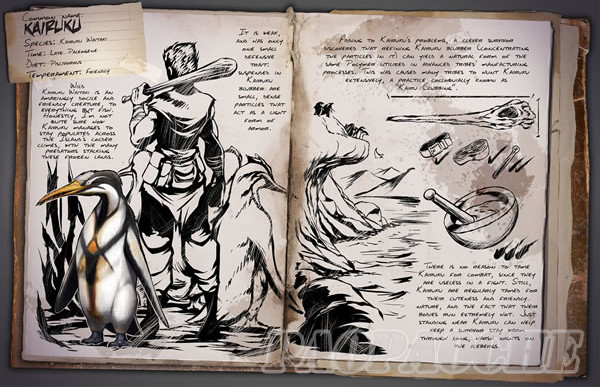 Common Name
KAIRUKU
Species: Kairuku Waitaki
Time: Late Paleogene
Diet: Piscivorous
Temperament: Friendly
Wild
Kairuku Waitaki is an
amazingly docile and
friendly creature, to
everything but fish.
Honestly, I'm not
quite sure how
Kairuku manages to
stay populated across
the island's colder
climes, with the many
predators stalking
these frozen lands.
It is weak,
and has only
one small
defensive
trait:
suspended in
Kairuku
blubber are
small, dense
particles that
act as a light
form of
armor.
Adding to Kairuku's problems, a clever survivor
discovered that refining Kairuku blubber (concentrating
the particles in it) can yield a natural form of the
same Polymer utilized in advanced tribes' manufacturing
processes. This has caused many tribes to hunt Kairuku
extensively, a practice colloquially known as
"Kairu Clubbing".
There is no reason to tame
Kairuku for combat, since they
are useless in a fight. Still,
Kairuku are regularly tamed for
their cuteness and friendly
nature, and the fact that their
bodies run extremely hot. Just
standing near Kairuku can help
keep a survivor stay warm
through long, harsh nights on
the icebergs.